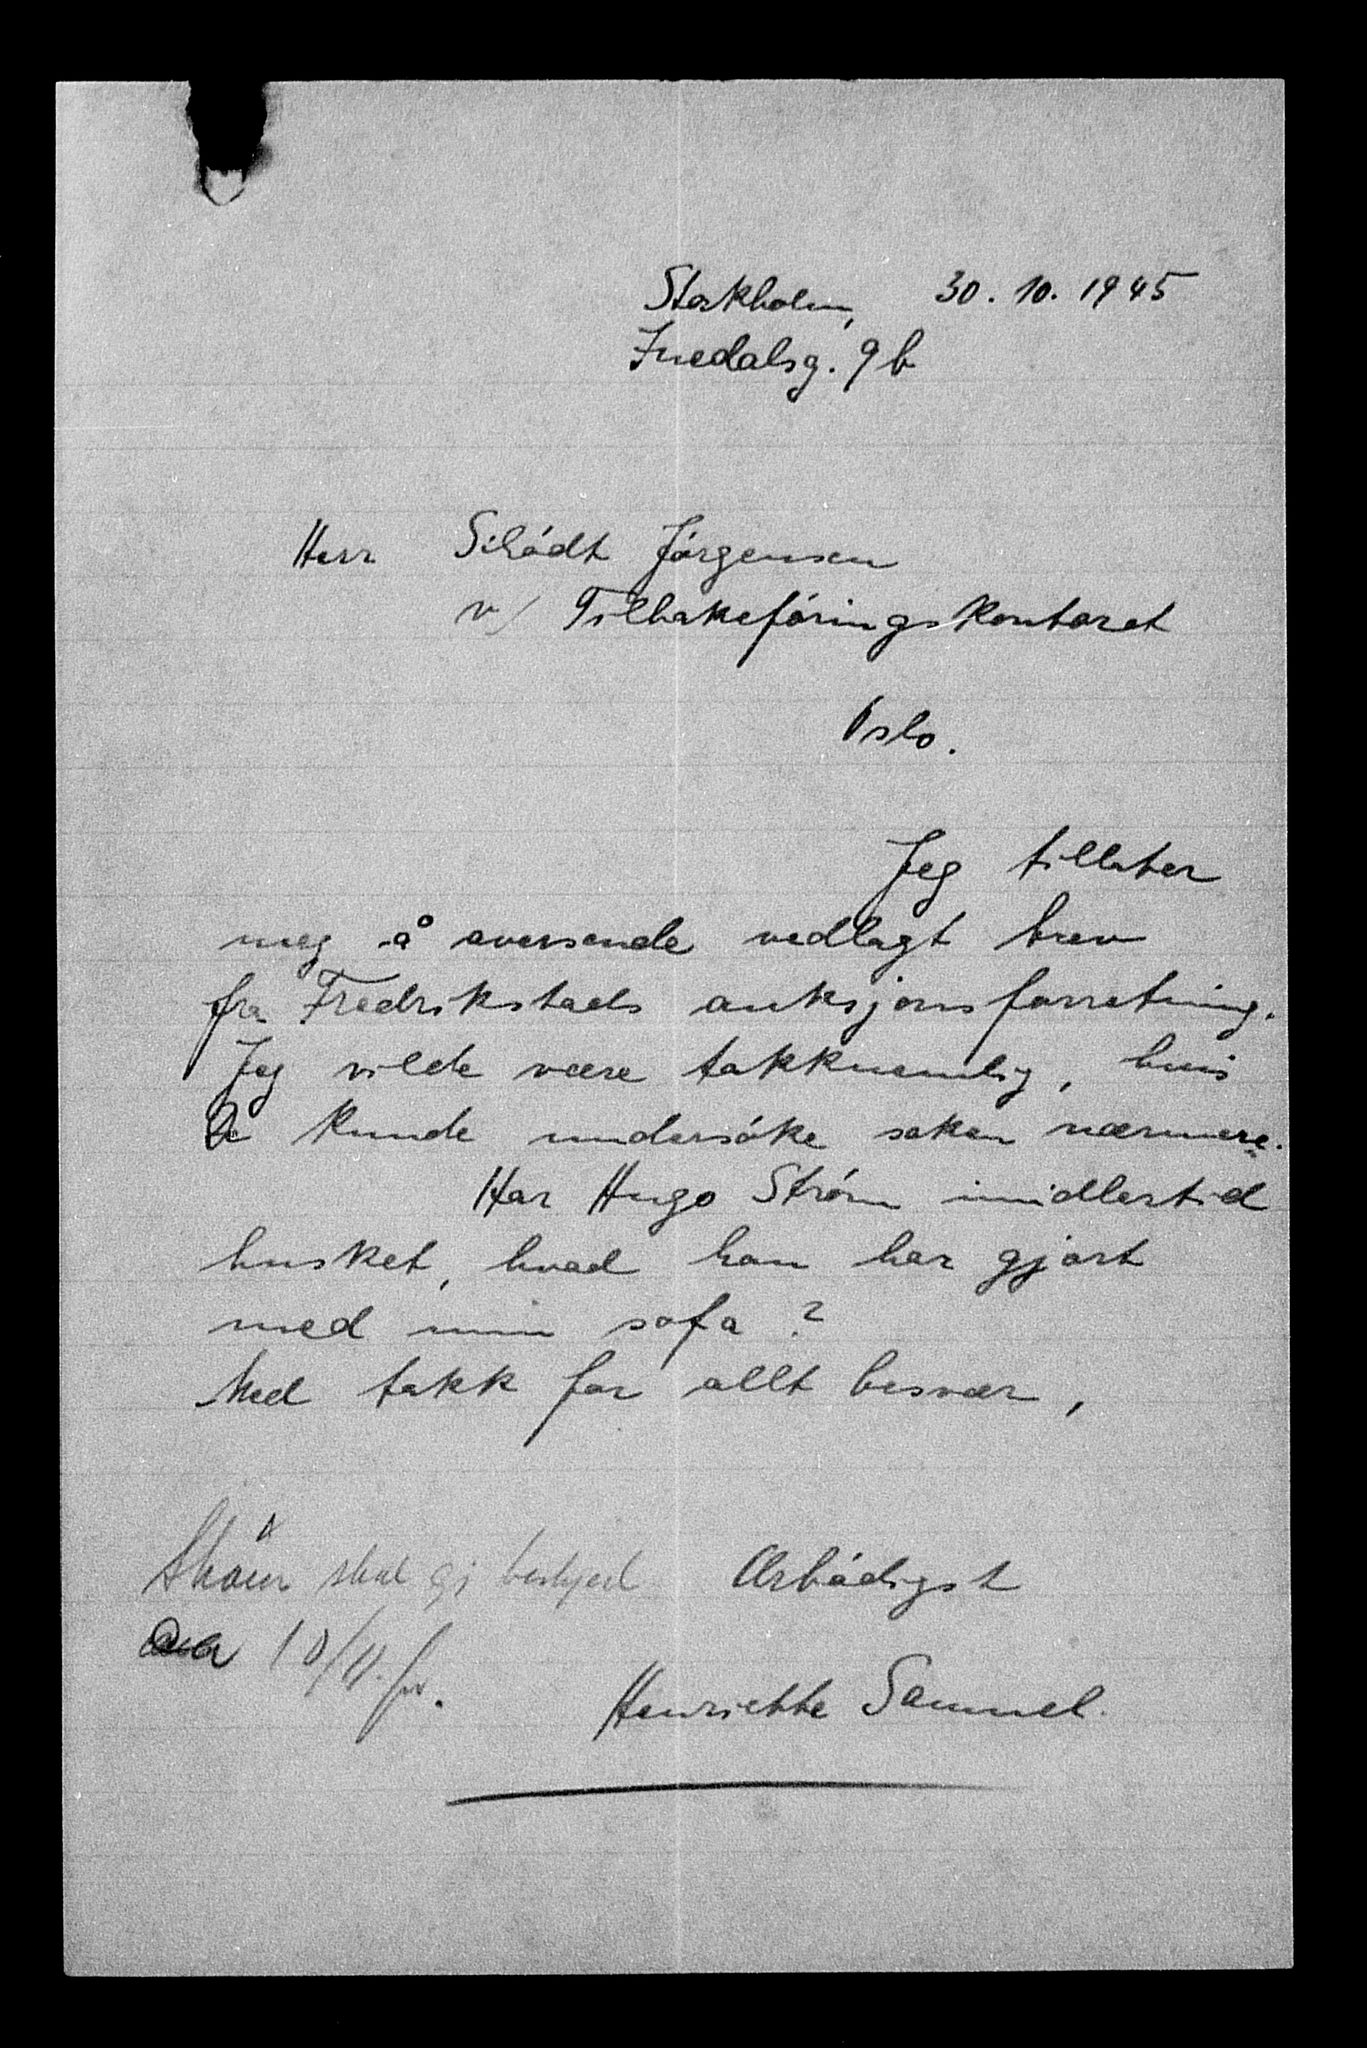 Stockholm, 30. 10. 1945
Inedalsg. 9 b
Herr Schødt Jørgensen
v/ Tilbakeføringskontoret
Oslo.
Jeg tillater
meg å oversende vedlagt brev
fra Fredrikstads auksjonsforretning.
Jeg vilde være takknemlig, hvis
De kunde undersøke saken nærmere.
Har Hugo Strøm imidlertid
husket, hvad han har gjort
med min sofa?
Med takk for allt besvær,
Ærbødigst
Henriette Samuel.
skal gi beskjed
10/11.